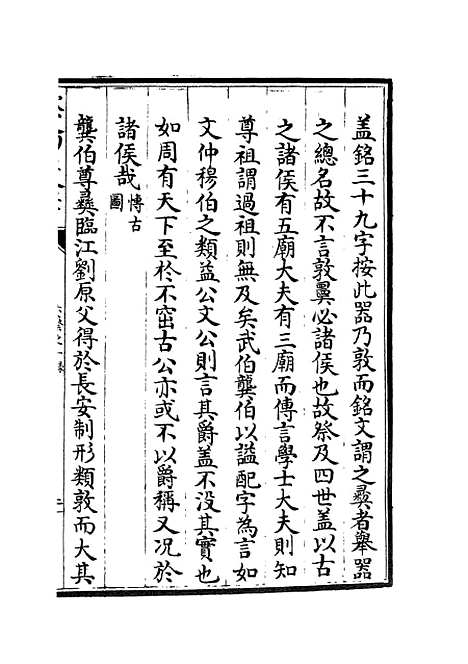 盖銘三十九字按此器乃敦而銘文謂之彞者舉器
之總名故不言敦翼必諸侯也故祭及四世盖以古
之諸侯有五廟大夫有三廟而傳言學士大夫則知
尊祖謂過祖則無及矣武伯龔伯以諡配字為言如
文仲穆伯之類益公文公則言其爵盖不没其實也
如周有天下至於不窋古公亦或不以爵稱又况於
諸侯哉博古圖
龔伯尊彞臨江劉原父得於長安制形類敦而大其